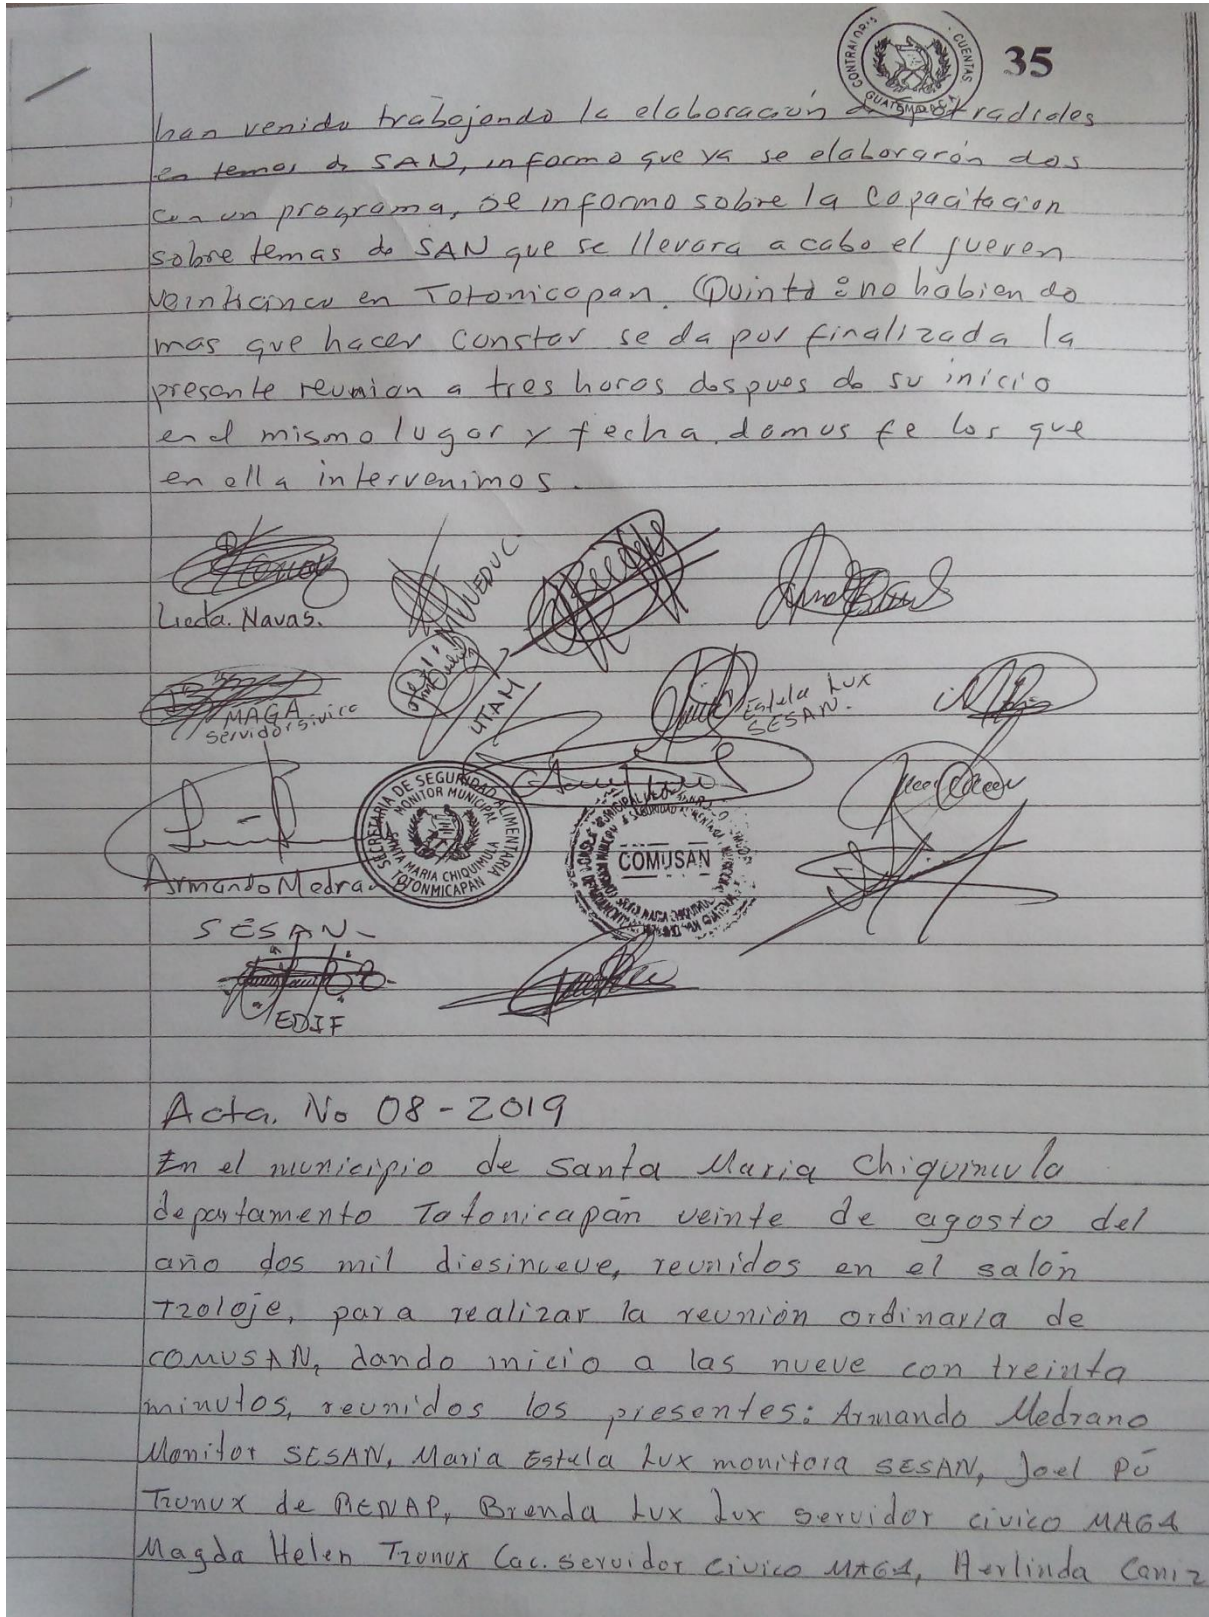 CONTRALORIA CUENTAS
GUATEMALA
35
han venido trabajando la elaboración de spot radiales
en temas de SAN, informo que ya se elaborarón dos
con un programa, se informo sobre la Capacitacion
sobre temas de SAN que se llevara a cabo el jueven
veinticinco en Totonicapan. Quinto: no habiendo
mas que hacer constar se da por finalizada la
presente reunion a tres horas despues de su inicio
en el mismo lugar y fecha. damos fe los que
en ella intervenimos.
Licda. Navas.
MINEDUC.
MAGA
Servidor Sivico
UTAM
Estela Lux
SESAN.
SECRETARIA DE SEGURIDAD ALIMENTARIA
MONITOR MUNICIPAL
SANTA MARIA CHIQUIMULA
TOTONICAPAN
COMUSAN
Armando Medrano
SESAN
EDIF
Acta. No 08-2019
En el municipio de Santa Maria Chiquimula
departamento Totonicapán veinte de agosto del
año dos mil diesinueve, reunidos en el salón
Tzoloje, para realizar la reunión ordinaria de
COMUSAN, dando inicio a las nueve con treinta
minutos, reunidos los presentes: Armando Medrano
Monitor SESAN, Maria Estela Lux monitora SESAN, Joel Pú
Tzunux de RENAP, Brenda Lux Lux servidor civico MAGA
Magda Helen Tzunux Cac. servidor civico MAGA, Herlinda Caniz